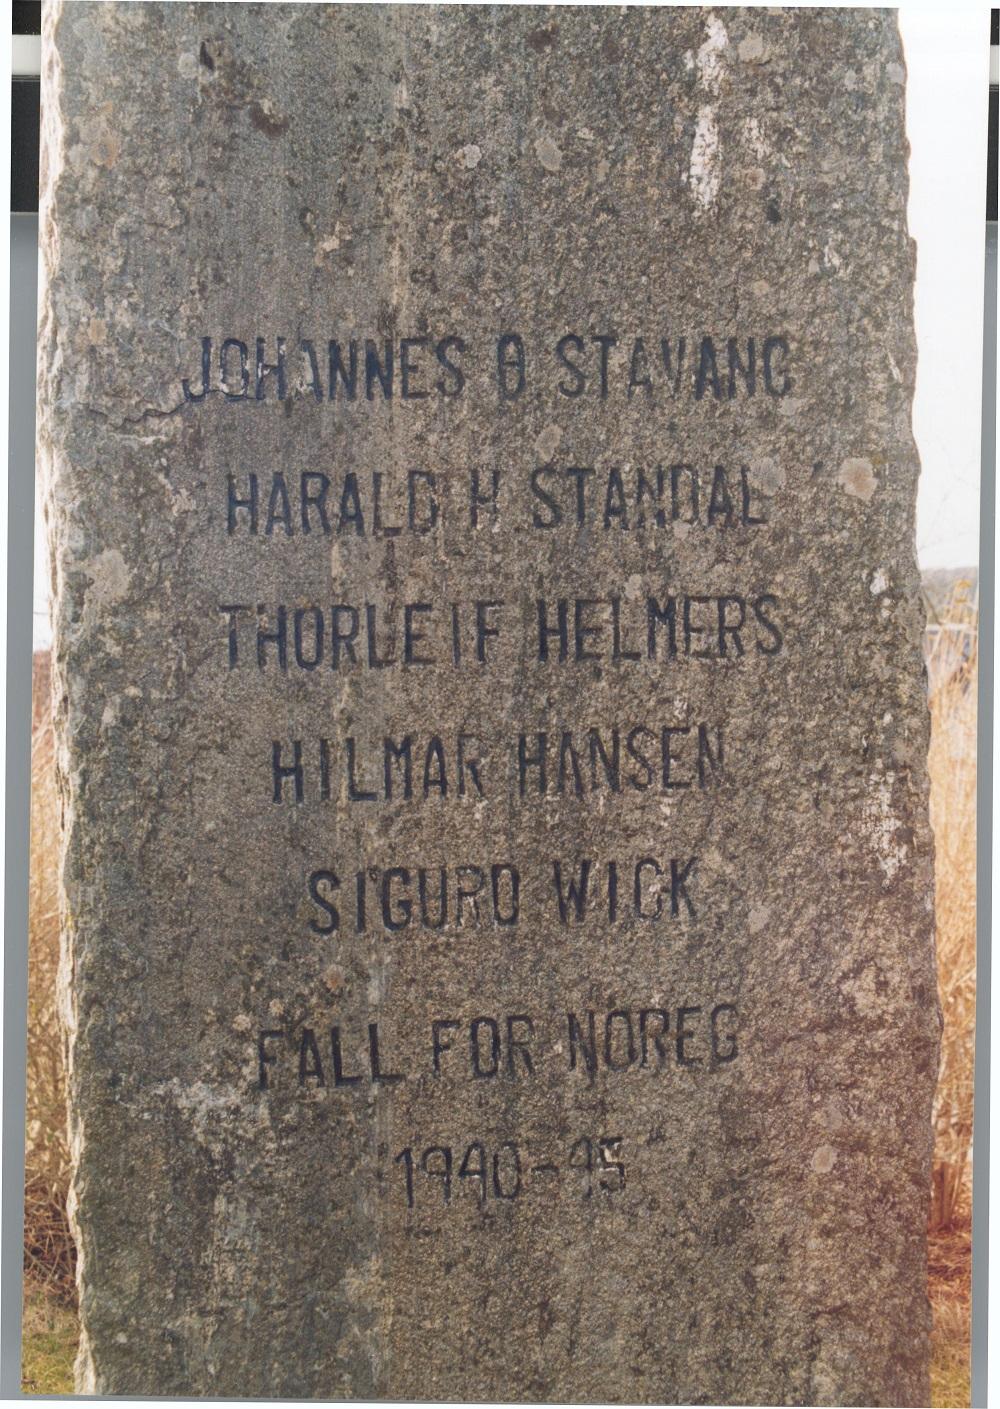 JOHANNES B STAVANG
HARALD H STANDAL
THORLEIF HELMERS
HILMAR HANSEN
SIGURD WICK
FALL FOR NOREG
1940-45